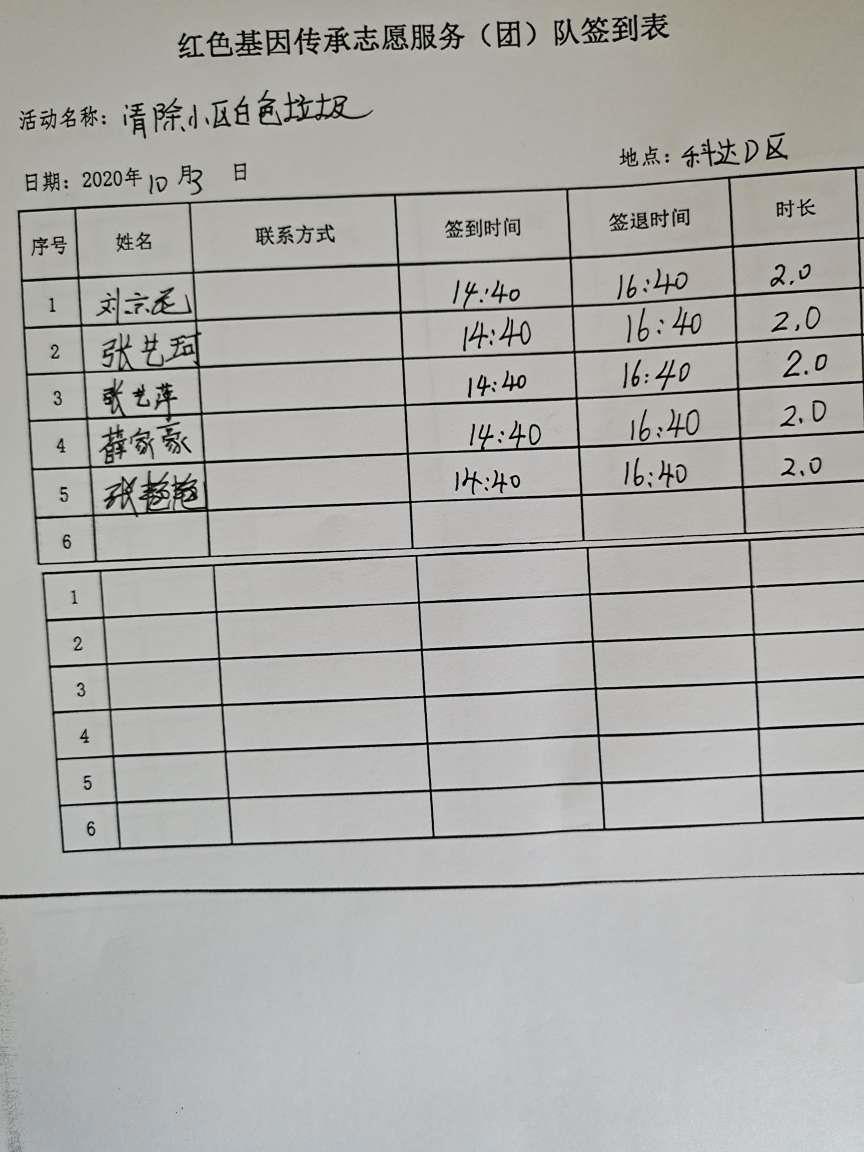 红色基因传承志愿服务（团）队签到表
活动名称：清除小区白色垃圾
地点：科达D区
日期：2020年10月3日
序号 姓名 联系方式 签到时间 签退时间 时长
1 刘京 14:40 16:40 2.0
2 张艺珂 14:40 16:40 2.0
3 张艺萍 14:40 16:40 2.0
4 薛家豪 14:40 16:40 2.0
5 张艳艳 14:40 16:40 2.0
6
1
2
3
4
5
6